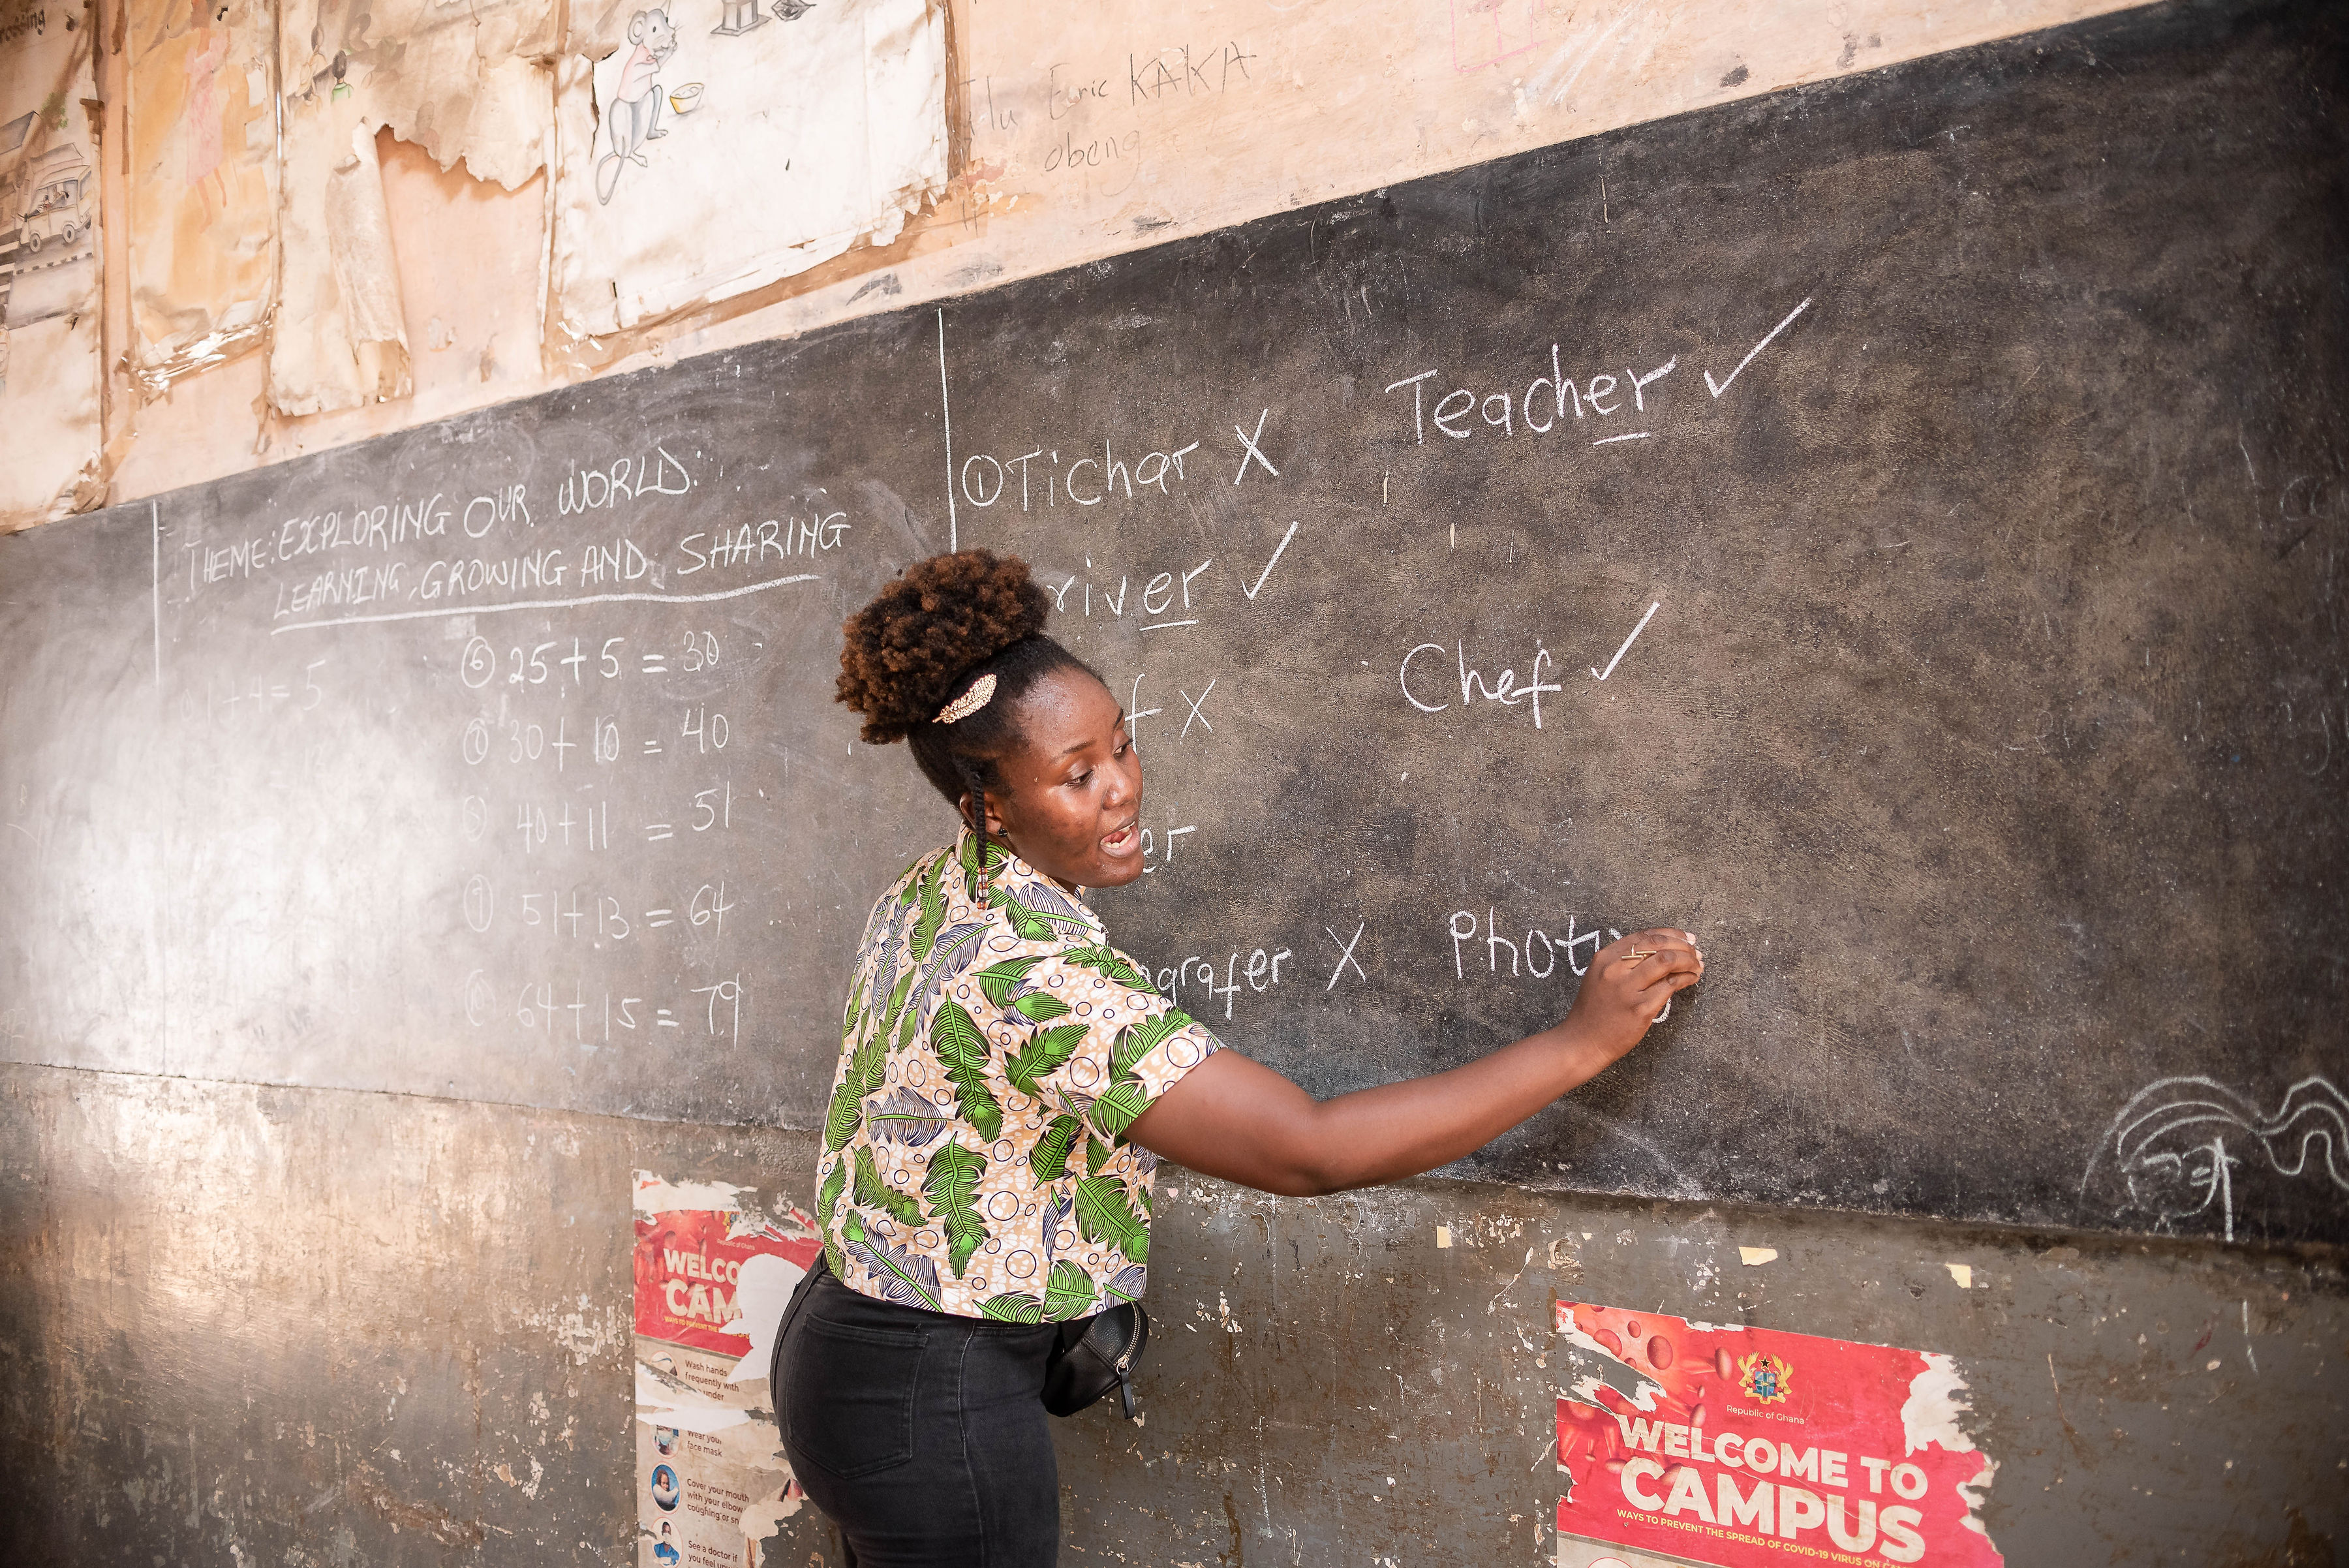 rossing
Eric KAKA
obeng
THEME: EXPLORING OUR WORLD:
LEARNING, GROWING AND SHARING
1+4=5
⑥ 25+5 = 30
30+10 = 40
40+11 = 51
51+13 = 64
64+15 = 79
① Tichar X Teacher ✓
river ✓
f X Chef ✓
er
grafer X Phot
WELCO
CAM
WAYS TO PREVENT THE
Wash hands
frequently with
under
Wear your
face mask
Cover your mouth
with your elbow
coughing or sn
See a doctor if
you feel
Republic of Ghana
WELCOME TO
CAMPUS
WAYS TO PREVENT THE SPREAD OF COVID-19 VIRUS ON CA